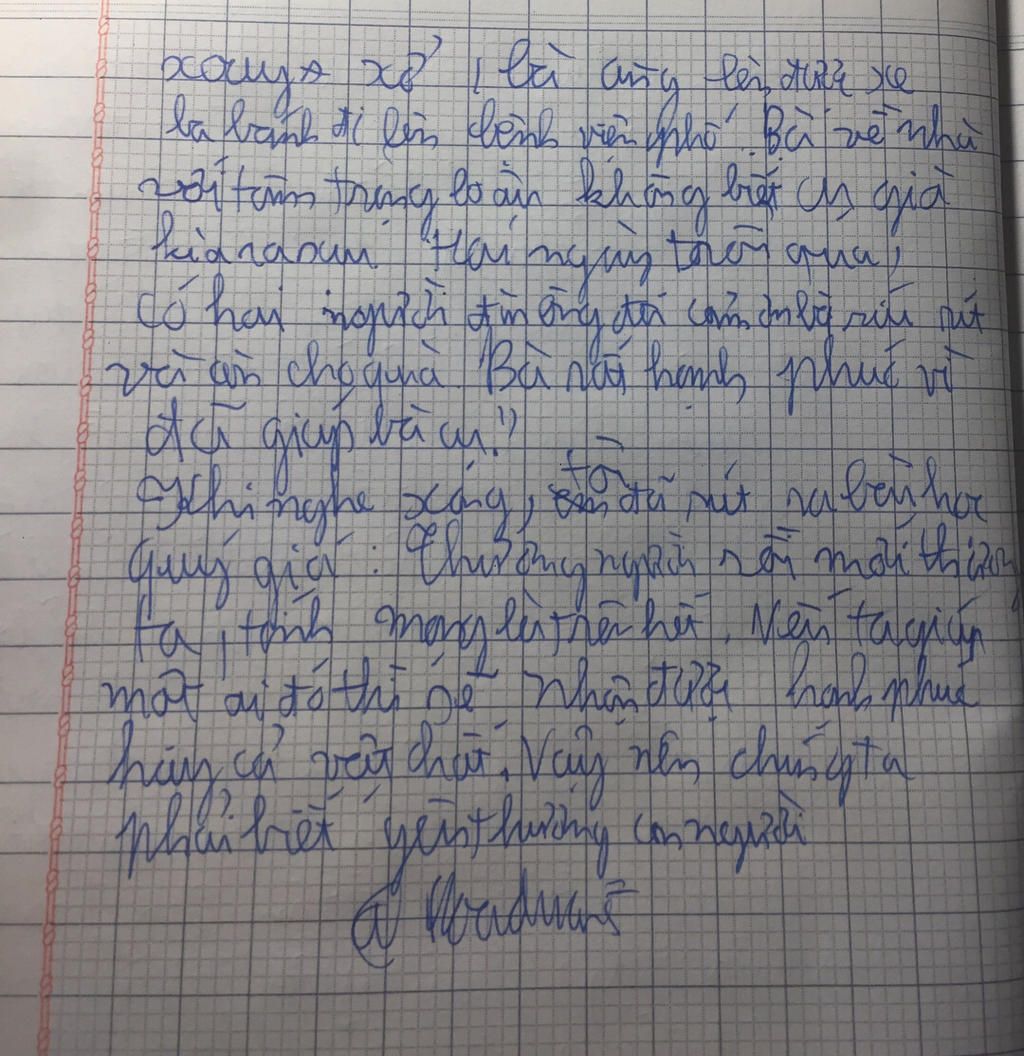 xoay xở, bà cùng lên, đưa xe
ba bánh đi lên bệnh viện phố. Bà về nhà
với tâm trạng loạn không biết cụ già
kia ra sau. Hai ngày trôi qua,
có hai người đàn ông đến cảm ơn bà ríu rít
và còn cho quà. Bà rất hạnh phúc vì
đã giúp bà cụ."
Khi nghe xong, tôi đã rút ra bài học
quý giá: Thương người rồi mới thương
ta, tính mạng là trên hết. Nếu ta giúp
một ai đó thì sẽ nhận được hạnh phúc
hay cả vật chất. Vậy nên chúng ta
phải biết yêu thương con người